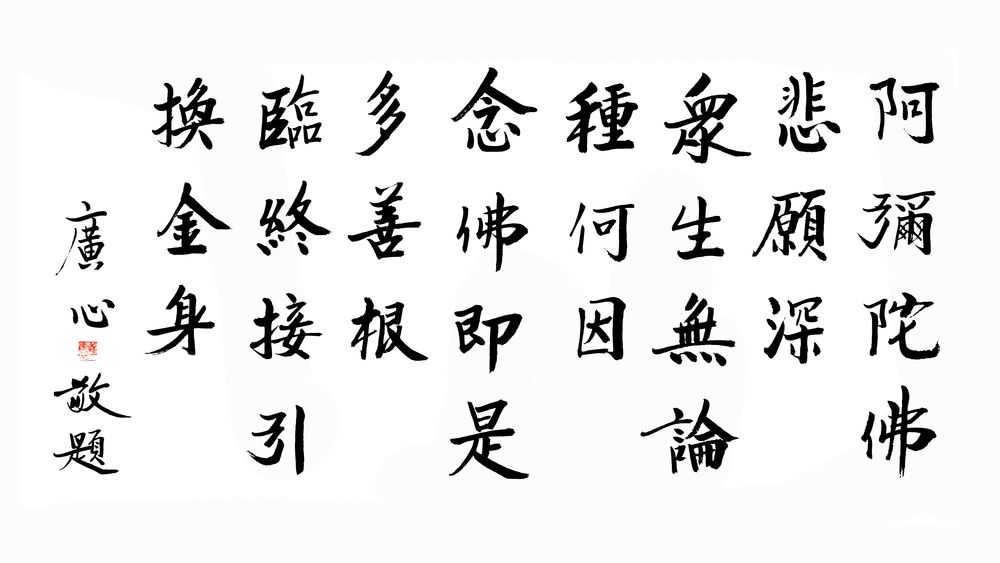 阿彌陀佛
悲願深
眾生無論
種何因
念佛即是
多善根
臨終接引
換金身
廣心敬題